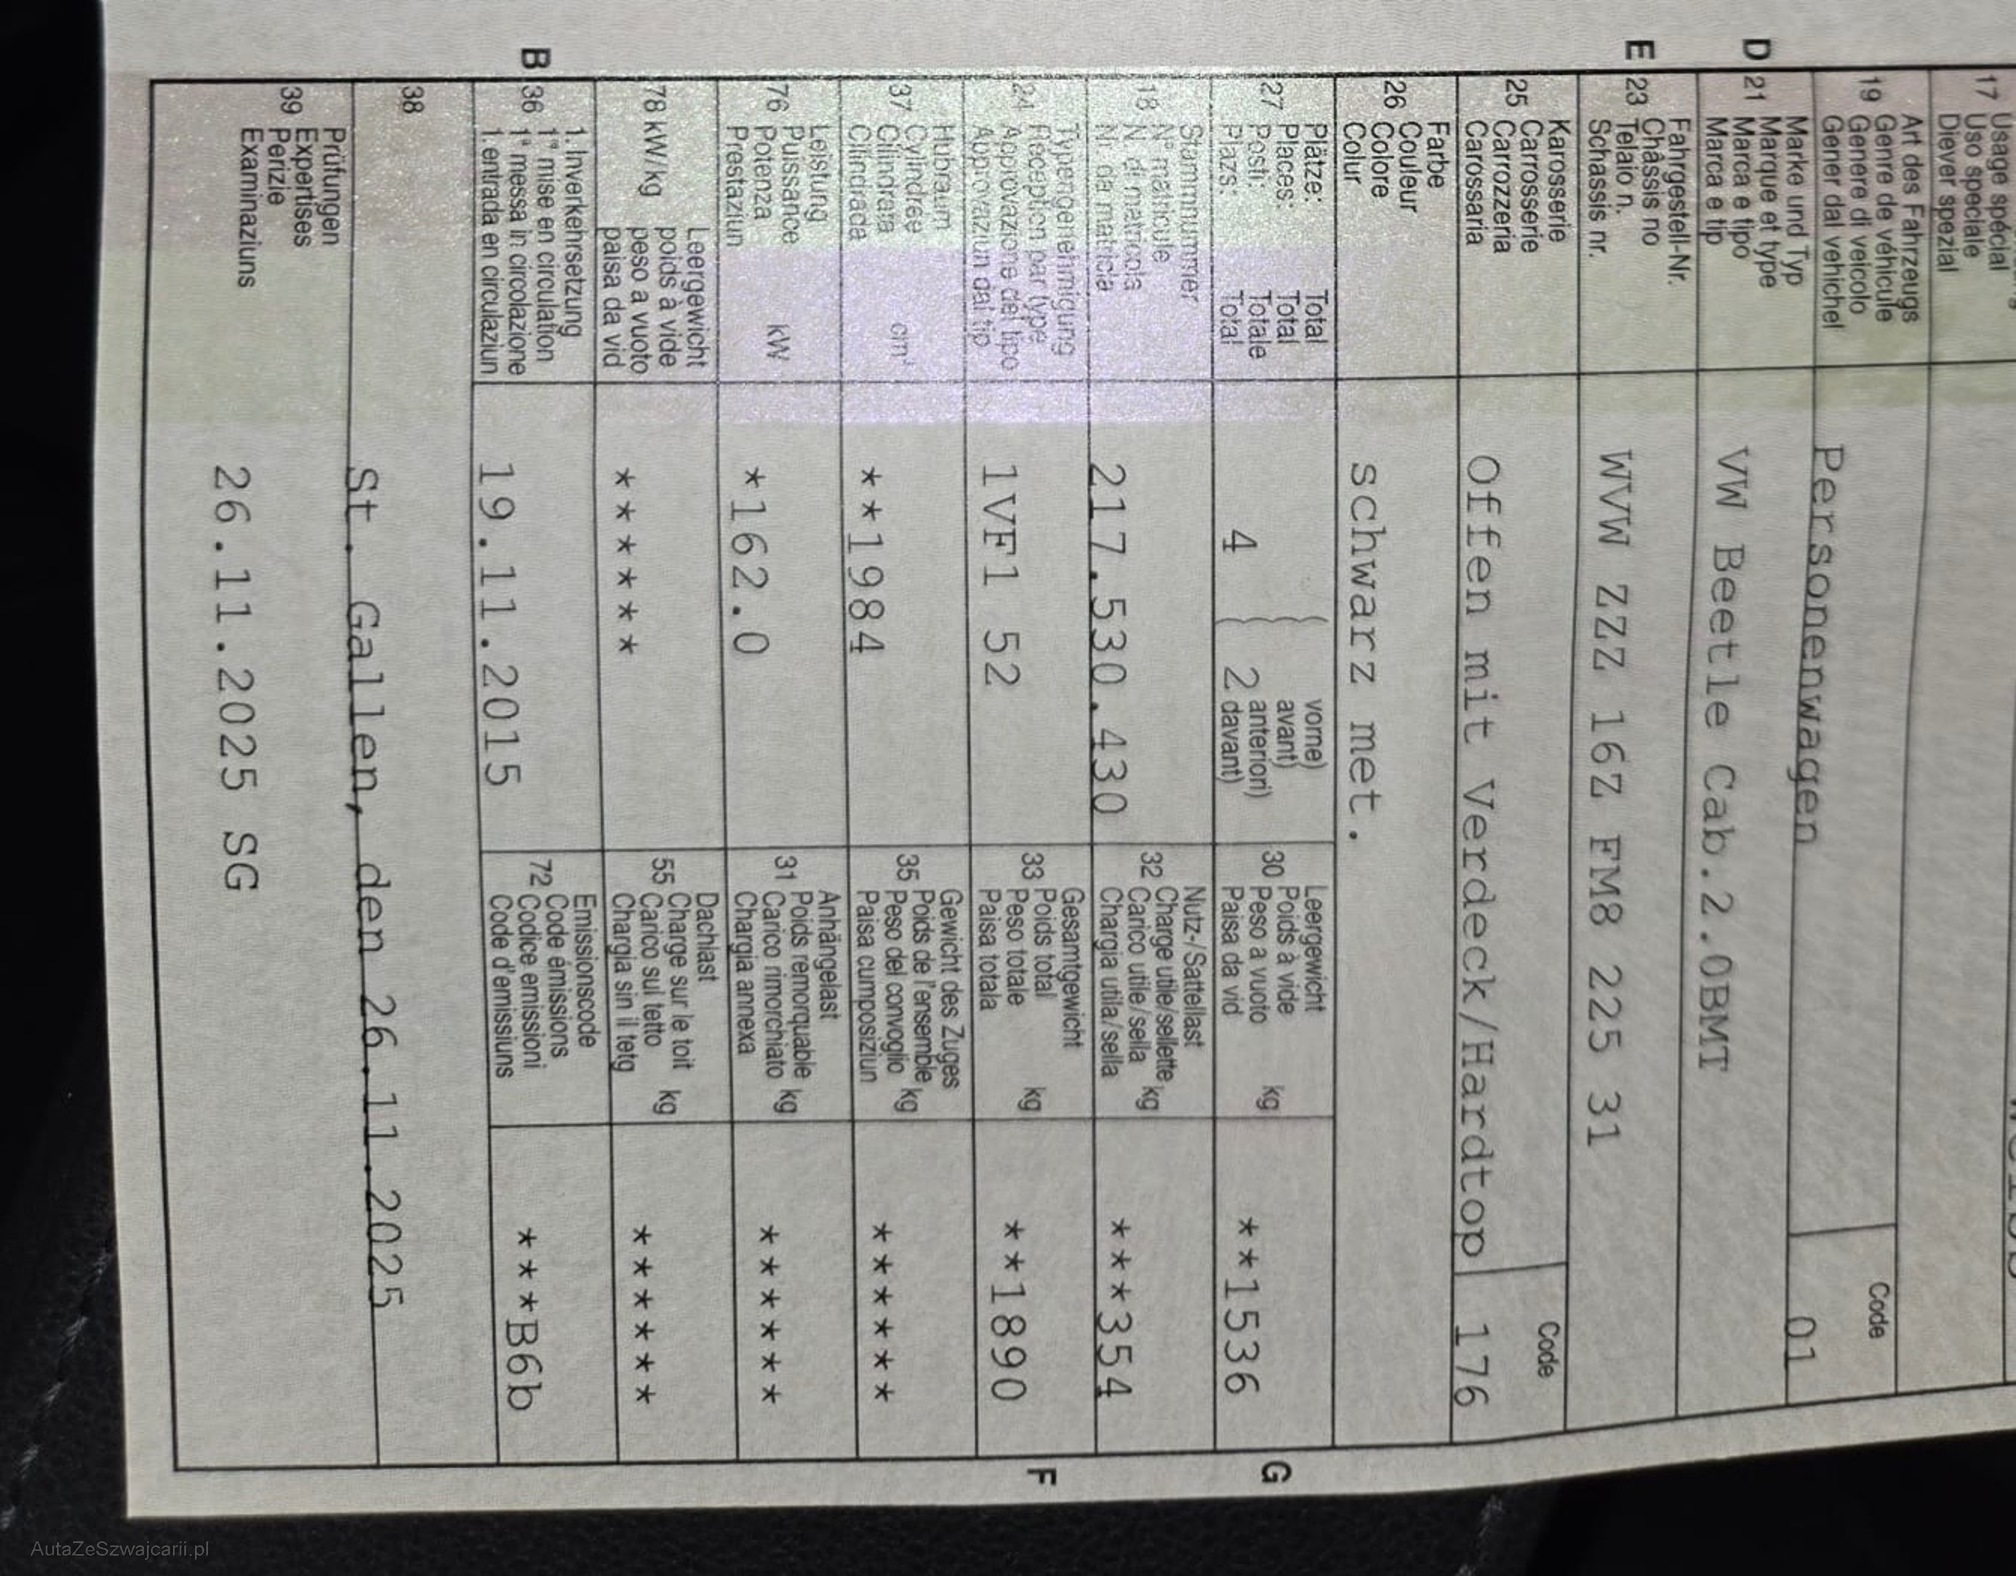 17 Usage spécial
Uso speciale
Diever spezial
Art des Fahrzeugs
19 Genre de véhicule
Genere di veicolo
Gener dal vehichel
Personenwagen
Code
01
Marke und Typ
D 21 Marque et type
Marca e tipo
Marca e tip
VW Beetle Cab.2.0BMT
Fahrgestell-Nr.
E 23 Châssis no
Telaio n.
Schassis nr.
WVW ZZZ 16Z FM8 225 31
Karosserie
25 Carrosserie
Carrozzeria
Carossaria
Offen mit Verdeck/Hardtop
Code
176
Farbe
26 Couleur
Colore
Colur
schwarz met.
Plätze: Total vorne)
27 Places: Total avant)
Posti: Totale anteriori)
Plazs: Total 4 2 davant)
Leergewicht
30 Poids à vide
Peso a vuoto kg
Paisa da vid
**1536
G
Stammnummer
18 N° matricule
N. di matricola
N. da matricla
217.530.430
Nutz-/Sattellast
32 Charge utile/sellette
Carico utile/sella kg
Chargia utila/sella
***354
Typengenehmigung
24 Réception par type
Approvazione del tipo
Approvaziun dal tip
1VF1 52
Gesamtgewicht
33 Poids total
Peso totale kg
Paisa totala
**1890
F
Hubraum
37 Cylindrée
Cilindrata cm³
Cilindrada
**1984
Gewicht des Zuges
35 Poids de l'ensemble
Peso del convoglio kg
Paisa cumposiziun
******
Leistung
76 Puissance
Potenza kW
Prestaziun
*162.0
Anhängelast
31 Poids remorquable
Carico rimorchiato kg
Chargia annexa
******
Leergewicht
78 kW/kg poids à vide
peso a vuoto
paisa da vid
******
Dachlast
55 Charge sur le toit
Carico sul tetto kg
Chargia sin il tetg
******
B 36 1. Inverkehrsetzung
1re mise en circulation
1a messa in circolazione
1. entrada en circulaziun
19.11.2015
Emissionscode
72 Code émissions
Codice emissioni
Code d'emissiuns
***B6b
38
St. Gallen, den 26.11.2025
Prüfungen
39 Expertises
Perizie
Examinaziuns
26.11.2025 SG
AutaZeSzwajcarii.pl